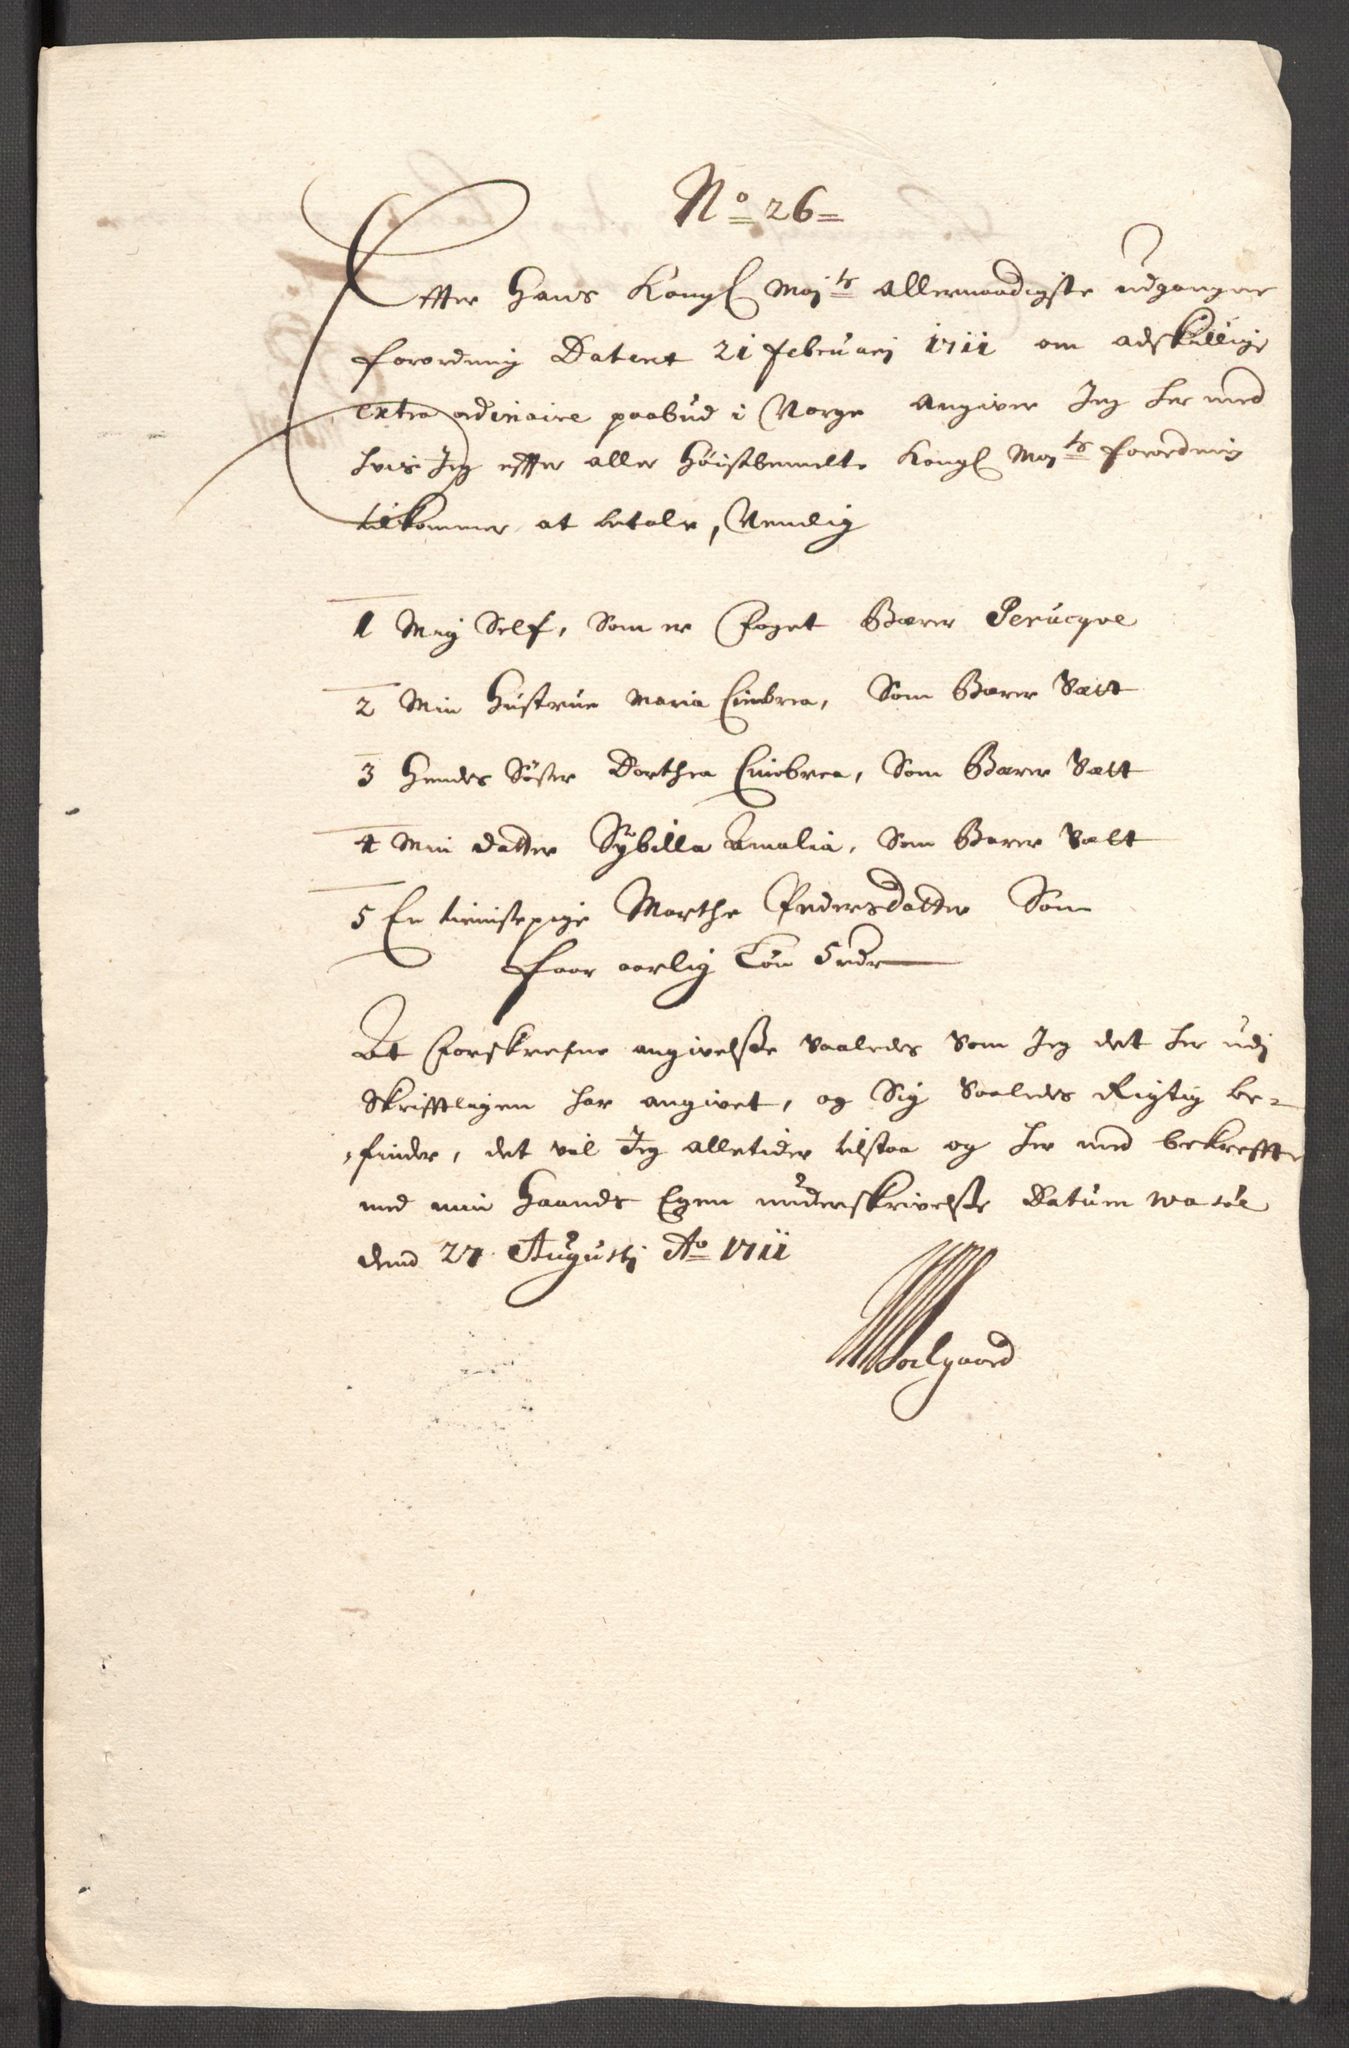 No 26
Effter Hans Kongl Majts allernaadigste udgangne
forordning Datert 21 februarj 1711 om adskillige
extra ordinaire paabud i Norge angiver Jeg her med
hvis Jeg effter aller Høistbemelte Kongl Majts forordning
tilkommer at betale, Nemlig
1 Mig Self, Som er Foget Bærer Perucqve
2 Min Hustrue Maria Cimbria, Som Bærer Sætt
3 Hendes Søster Dorthea Cimbrea, Som Bærer Sætt
4 Min datter Sÿbilla Amalia, Som Bærer Sætt
5 En tienistepige Marthe Pedersdatter Som
faar aarlig Løn 5 rdr
At Forskrefne angivelsse saaledes Som Jeg det her udj
Skrifftligen har angivet, og Sig Saaledes Rigtig be-
finder, det vil Jeg alletider tilstaa og her med bekreffte
med min Haands Egen underskrivelsse Datum
dend 27 Augustj Ao 1711